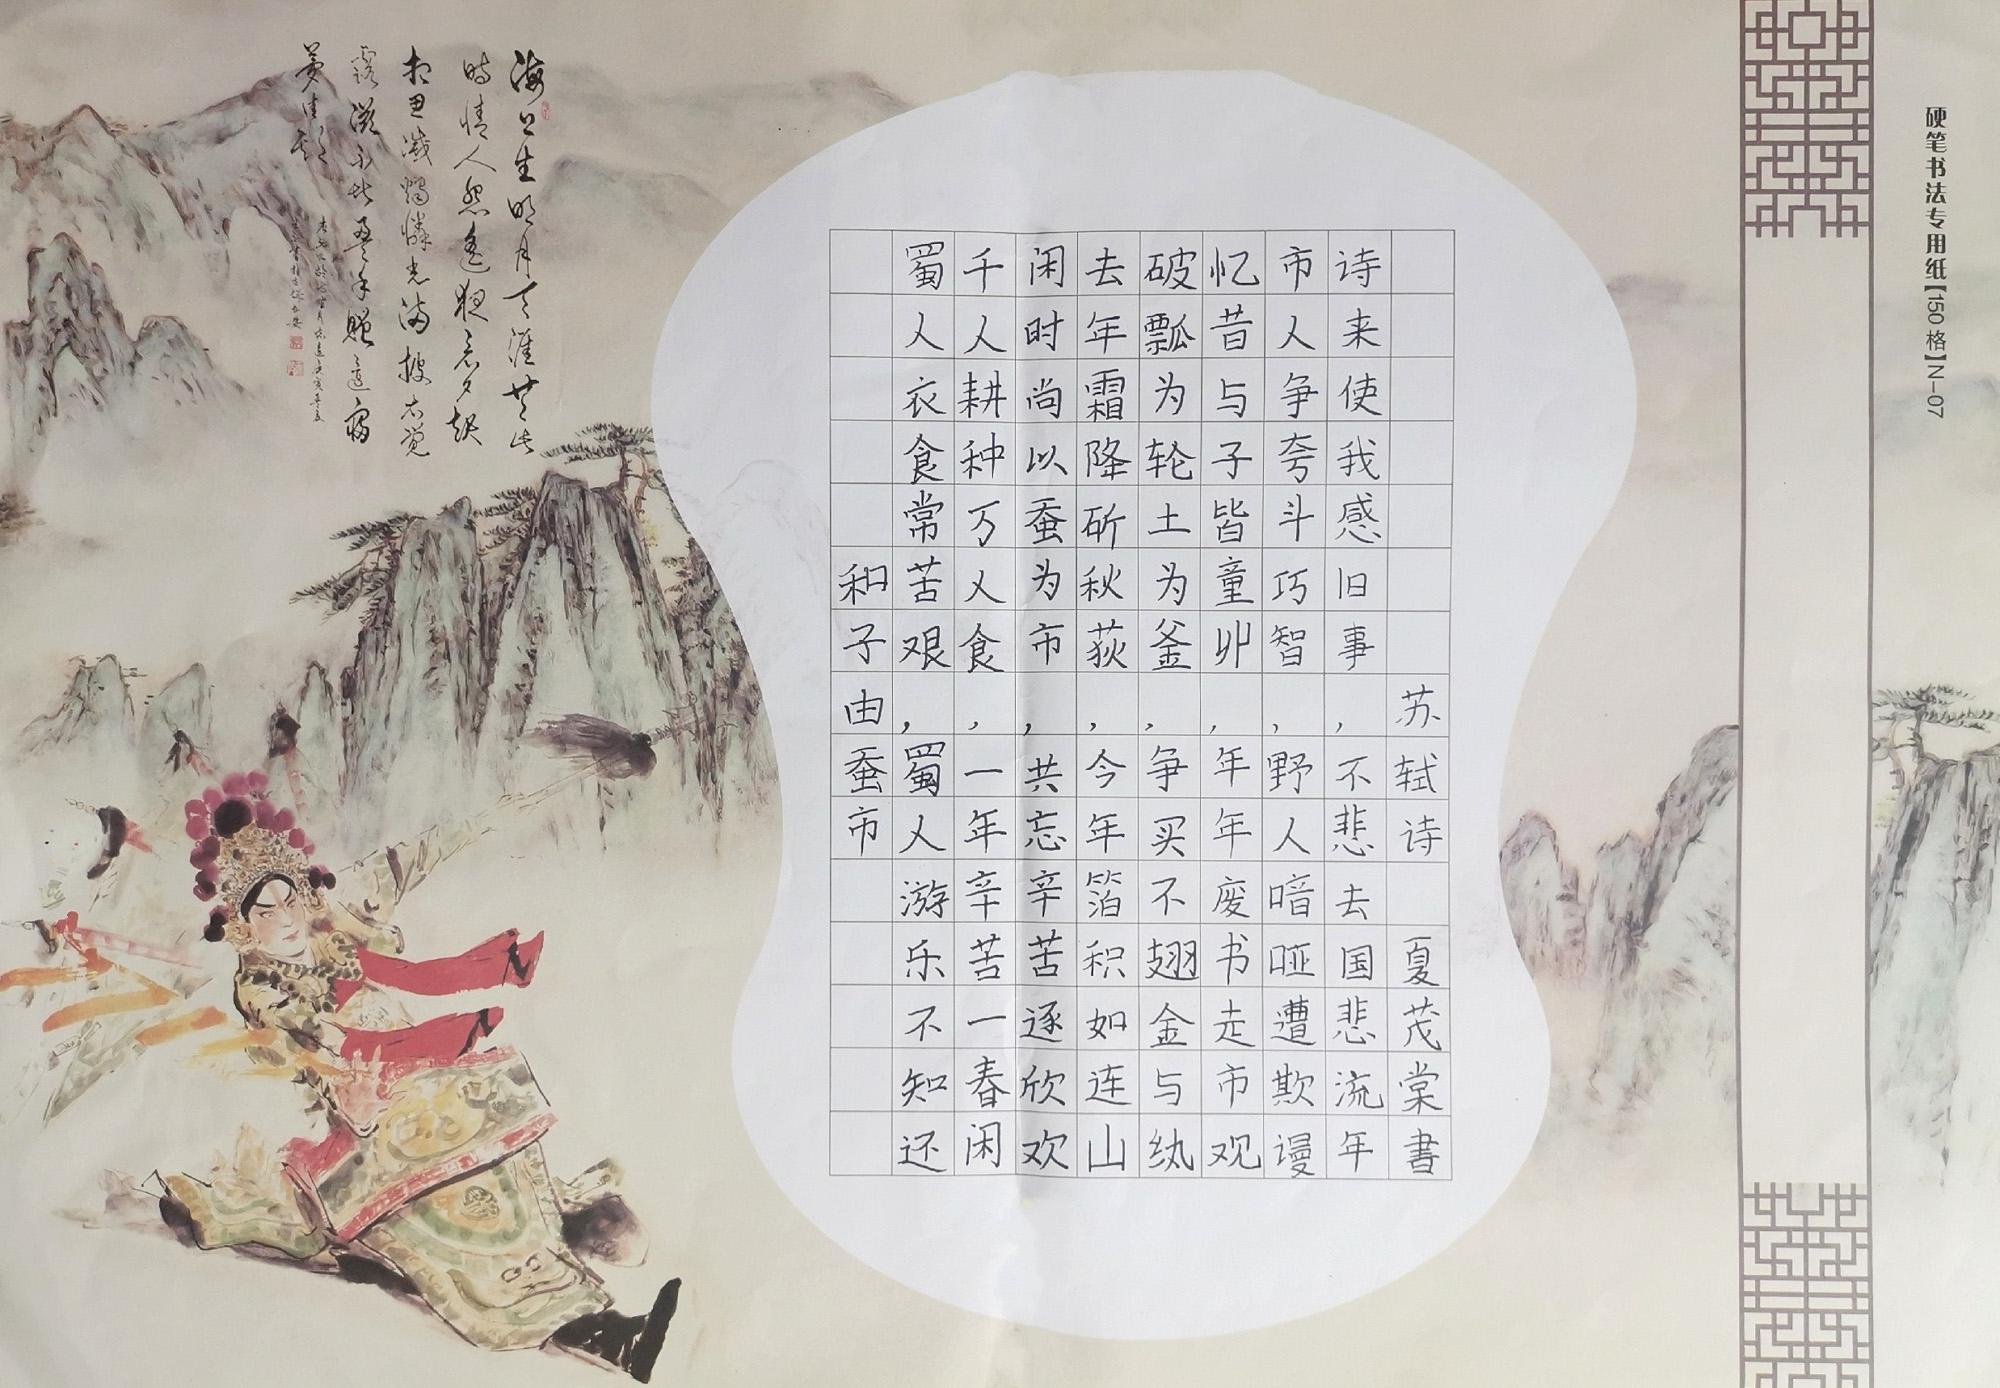 海上生明月天涯共此
時情人怨遙夜竟夕起
相思滅燭憐光滿披衣覺
露滋不堪盈手贈還寢
夢佳期
和子由蚕市
蜀人衣食常苦艰，蜀人游乐不知还
千人耕种万人食，一年辛苦一春闲
闲时尚以蚕为市，共忘辛苦逐欣欢
去年霜降斫秋荻，今年箔积如连山
破瓢为轮土为釜，争买不翅金与纨
忆昔与子皆童丱，年年废书走市观
市人争夸斗巧智，野人喑哑遭欺谩
诗来使我感旧事，不悲去国悲流年
苏轼诗 夏茂棠書
硬笔书法专用纸【150格】N—07